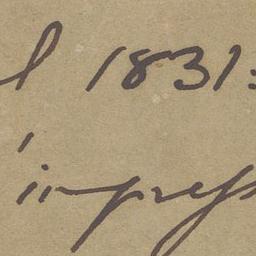 l 1831:
impress